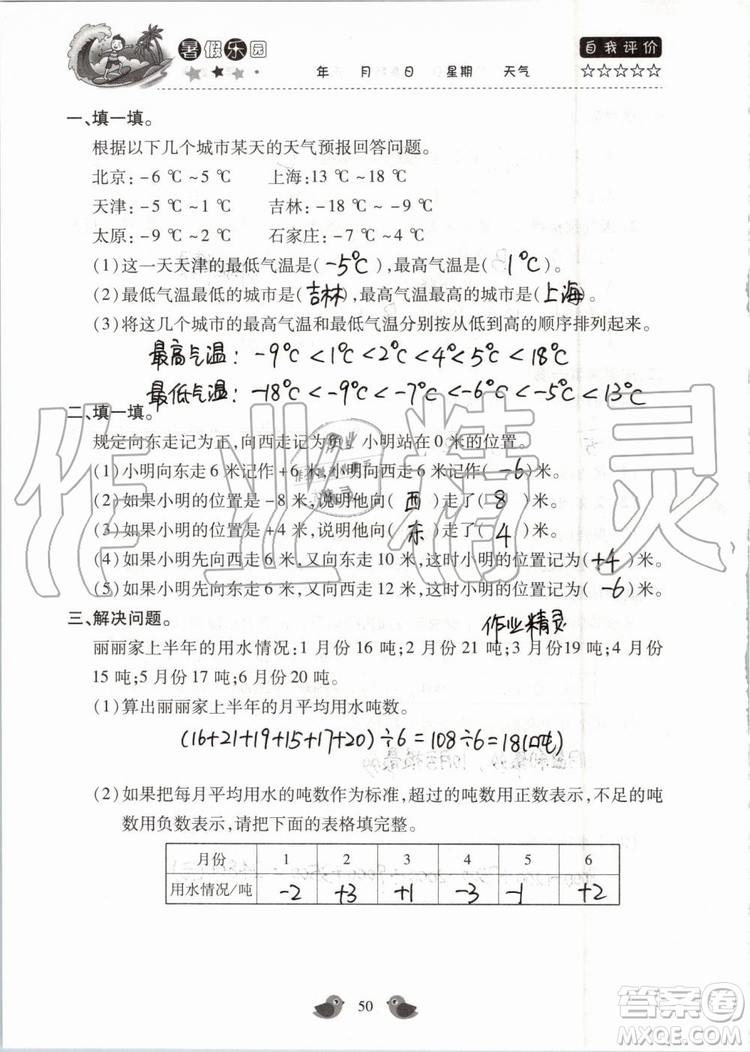 暑假乐园
自我评价
年 月 日 星期 天气
☆☆☆☆☆
一、填一填。
根据以下几个城市某天的天气预报回答问题。
北京:-6 ℃~5 ℃ 上海:13 ℃~18 ℃
天津:-5 ℃~1 ℃ 吉林:-18 ℃~-9 ℃
太原:-9 ℃~2 ℃ 石家庄:-7 ℃~4 ℃
(1)这一天天津的最低气温是( -5℃ ),最高气温是( 1℃ )。
(2)最低气温最低的城市是( 吉林 ),最高气温最高的城市是( 上海 )。
(3)将这几个城市的最高气温和最低气温分别按从低到高的顺序排列起来。
最高气温: -9℃<1℃<2℃<4℃<5℃<18℃
最低气温: -18℃<-9℃<-7℃<-6℃<-5℃<13℃
二、填一填。
规定向东走记为正,向西走记为负,小明站在 0 米的位置。
(1)小明向东走 6 米记作+6 米,小明向西走 6 米记作( -6 )米。
(2)如果小明的位置是-8 米,说明他向( 西 )走了( 8 )米。
(3)如果小明的位置是+4 米,说明他向( 东 )走了( 4 )米。
(4)如果小明先向西走 6 米,又向东走 10 米,这时小明的位置记为( +4 )米。
(5)如果小明先向东走 6 米,又向西走 12 米,这时小明的位置记为( -6 )米。
三、解决问题。
作业精灵
丽丽家上半年的用水情况:1 月份 16 吨;2 月份 21 吨;3 月份19吨;4 月份
15 吨;5 月份 17 吨;6 月份 20 吨。
(1)算出丽丽家上半年的月平均用水吨数。
(16+21+19+15+17+20)÷6=108÷6=18(吨)
(2)如果把每月平均用水的吨数作为标准,超过的吨数用正数表示,不足的吨
数用负数表示,请把下面的表格填完整。
月份 1 2 3 4 5 6
用水情况/吨 -2 +3 +1 -3 -1 +2
50
作业精灵
答案圈
MXQE.COM